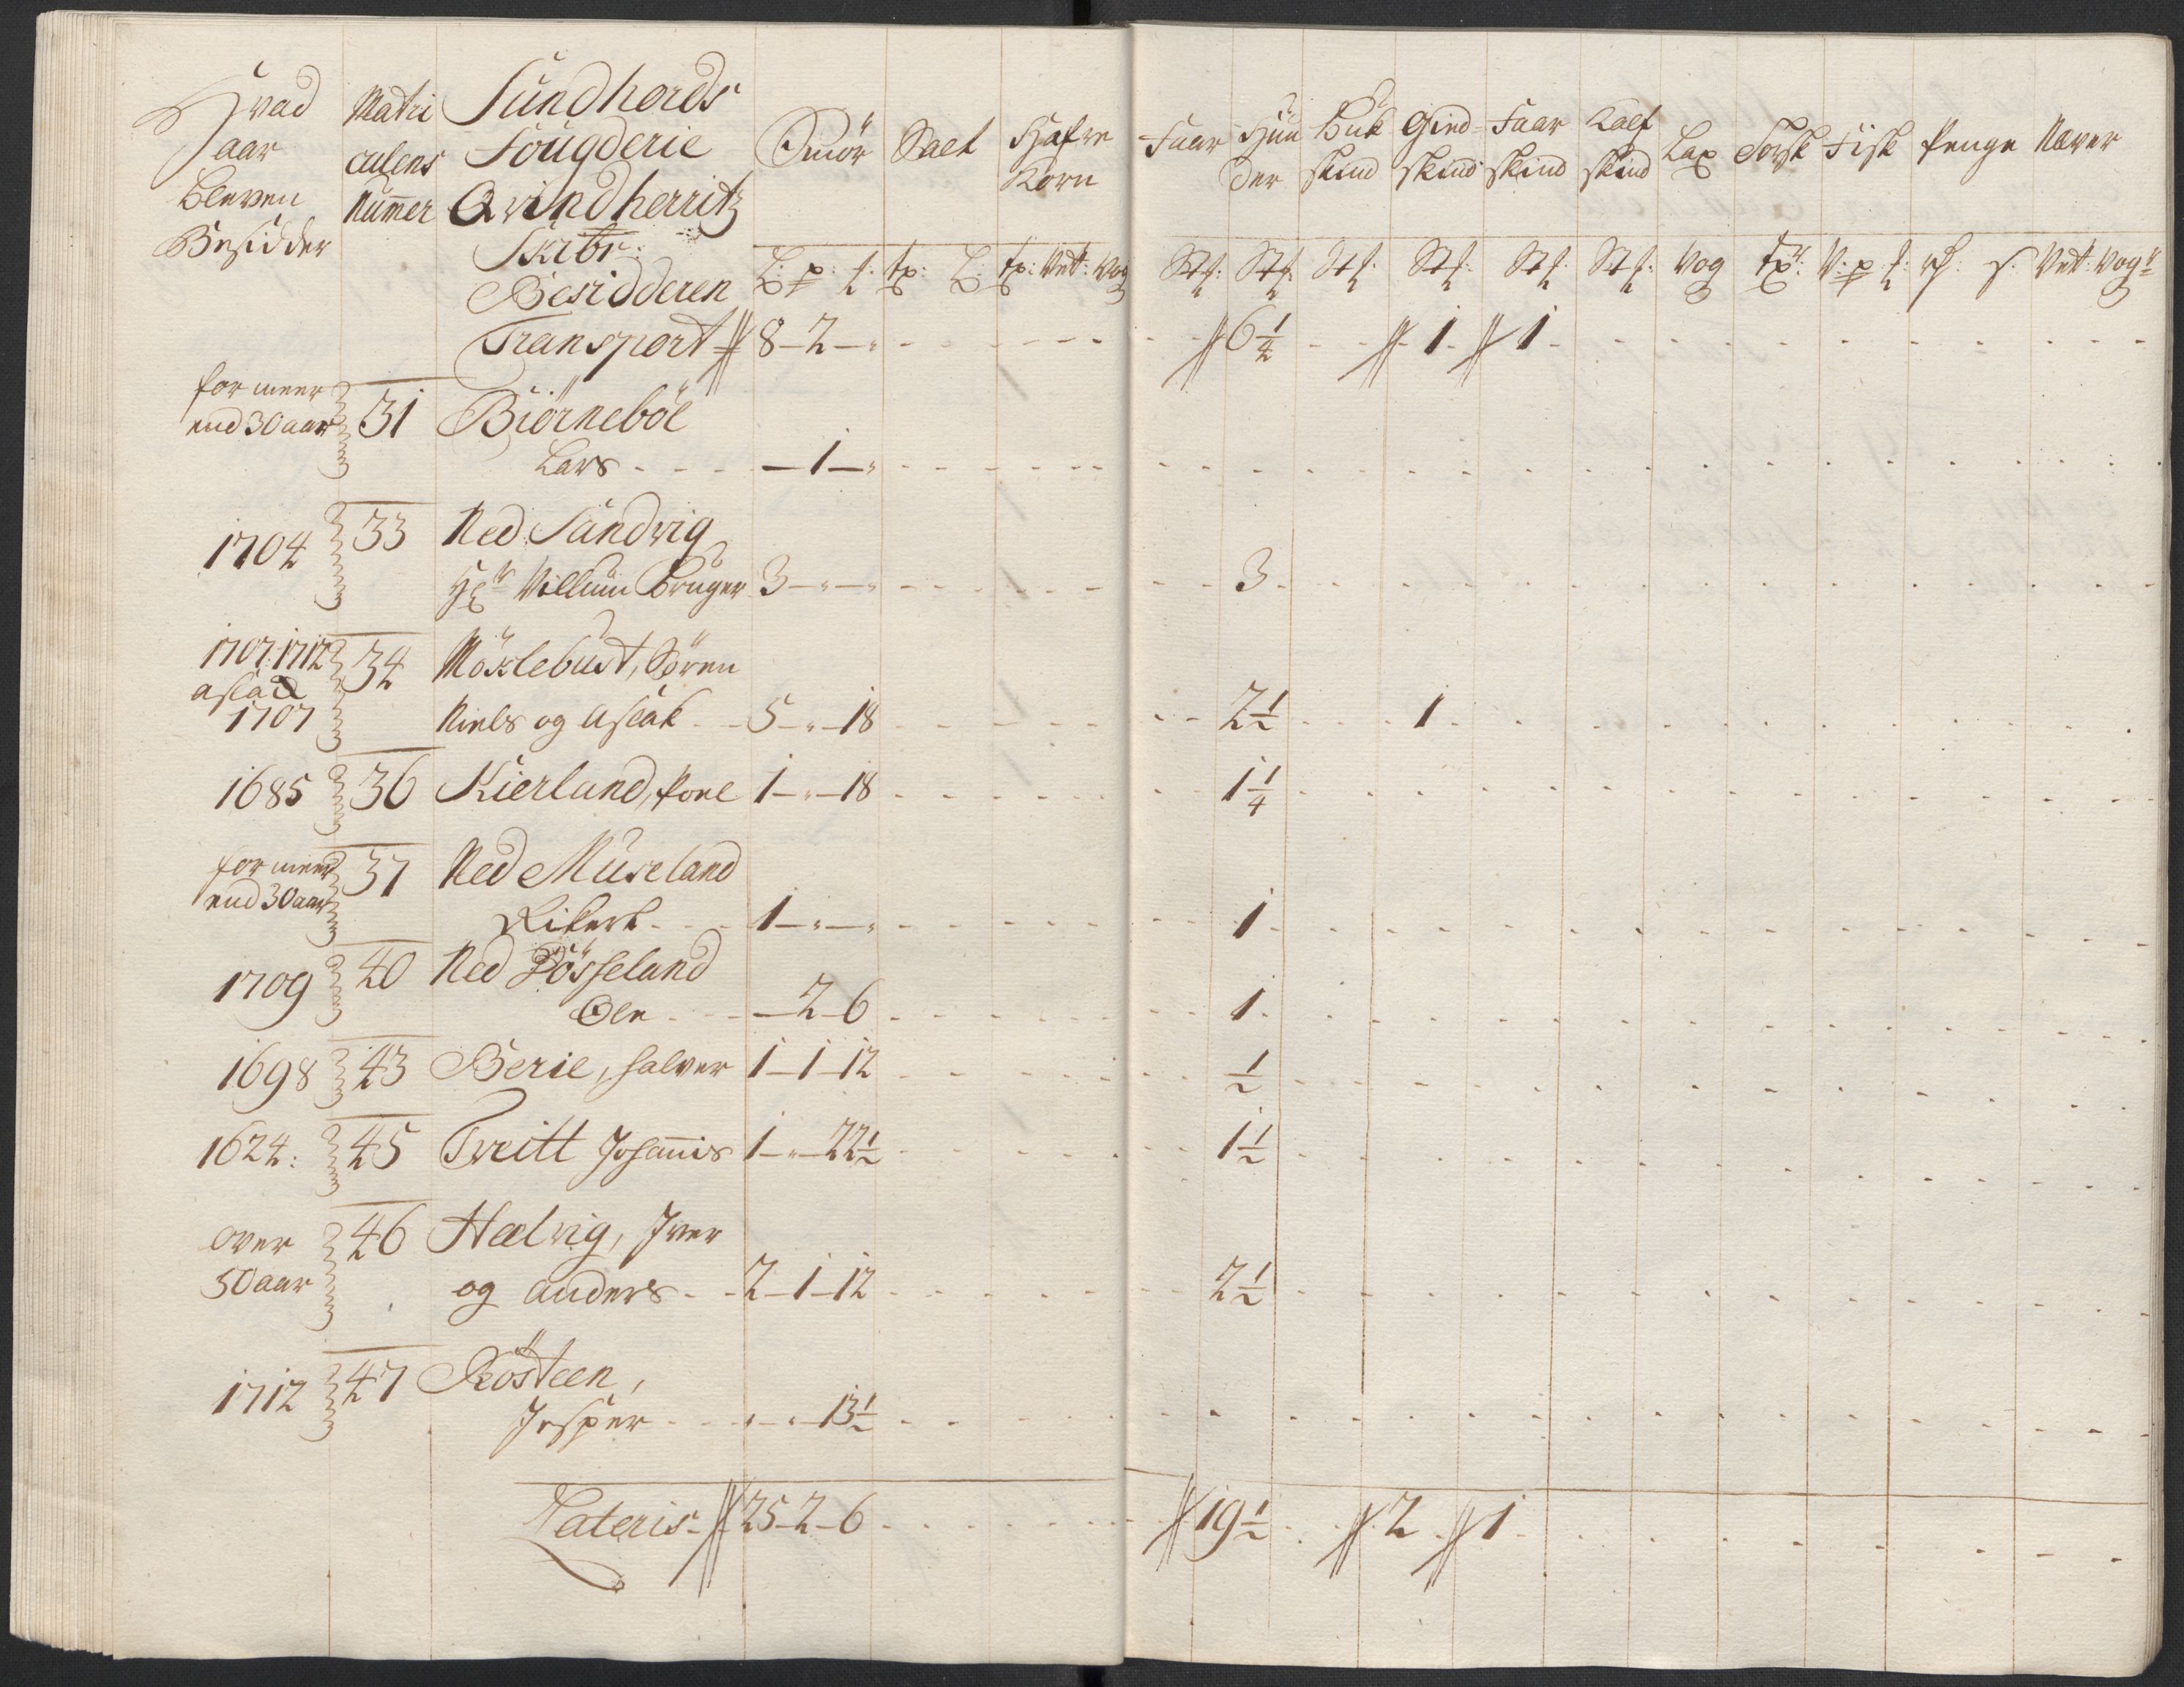 Hvad Aar bleven Besidder | Matriculens Nummer | Sundhords Fougderie Qvindherritz Skibr: Besidderen | Smör | Salt | Hafre Korn | Faar | Hüder | Buk skind | Gied skind | Faar skind | Kalf skind | Lax | Torsk | Fisk | Penge | Never
Transport 8-2-" 6 1/4 1 1
for meer
end 30 aar 31 Biörneböl
Lars -1-"
1704 33 Ned Sandvig
Hr Villum Bruger 3-"-" 3
1707: 1712 34 Möxlebust, Sören
Aslak
1707 Niels og Aslak 5-"-18 2 1/2 1
1685 36 Kierland, Poul 1-"-18 1 1/4
for meer 37 Ned Museland
end 30 aar Rikert 1-"-" 1
1709 40 Ned Rösseland
Ole -2-6 1
1698 43 Berie, Halver 1-1-12 1/2
1624: 45 Tveitt Johannis 1-"-22 1/2 1 1/2
over 46 Hælvig, Iver
50 aar og Anders 2-1-12 2 1/2
1712 47 Rösteen,
Jesper "-"-13 1/2
Lateris 25-2-6 19 1/2 2 1